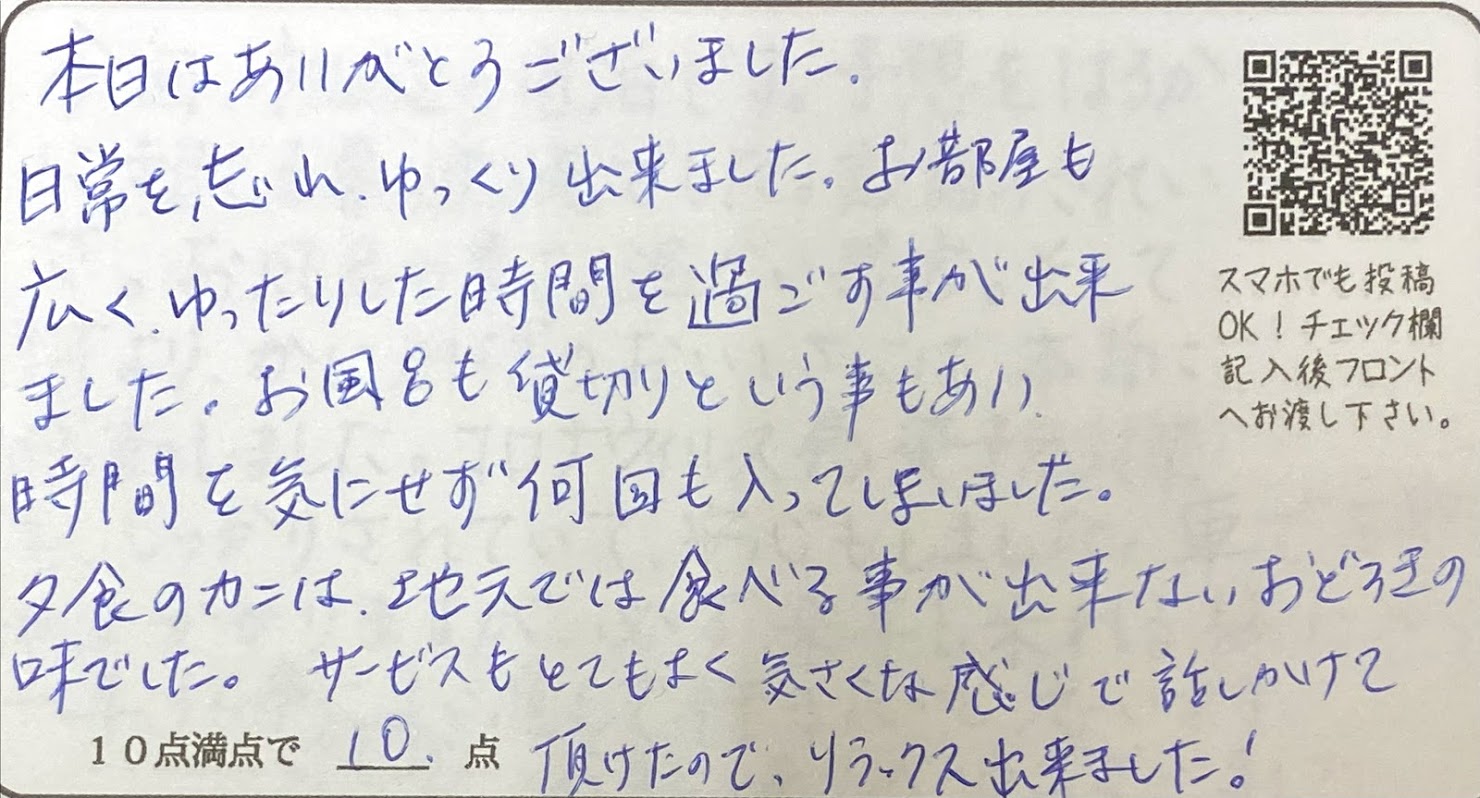 本日はありがとうございました.
日常を忘れ、ゆっくり出来ました。お部屋も
広く、ゆったりした時間を過ごす事が出来
ました。お風呂も貸切りという事もあり、
時間を気にせず何回も入ってしまいました。
夕食のカニは、地元では食べる事が出来ないおどろきの
味でした。 サービスもとてもよく気さくな感じで話しかけて
頂けたので、リラックス出来ました!
10点満点で 10. 点
スマホでも投稿
OK!チェック欄
記入後フロント
へお渡し下さい。